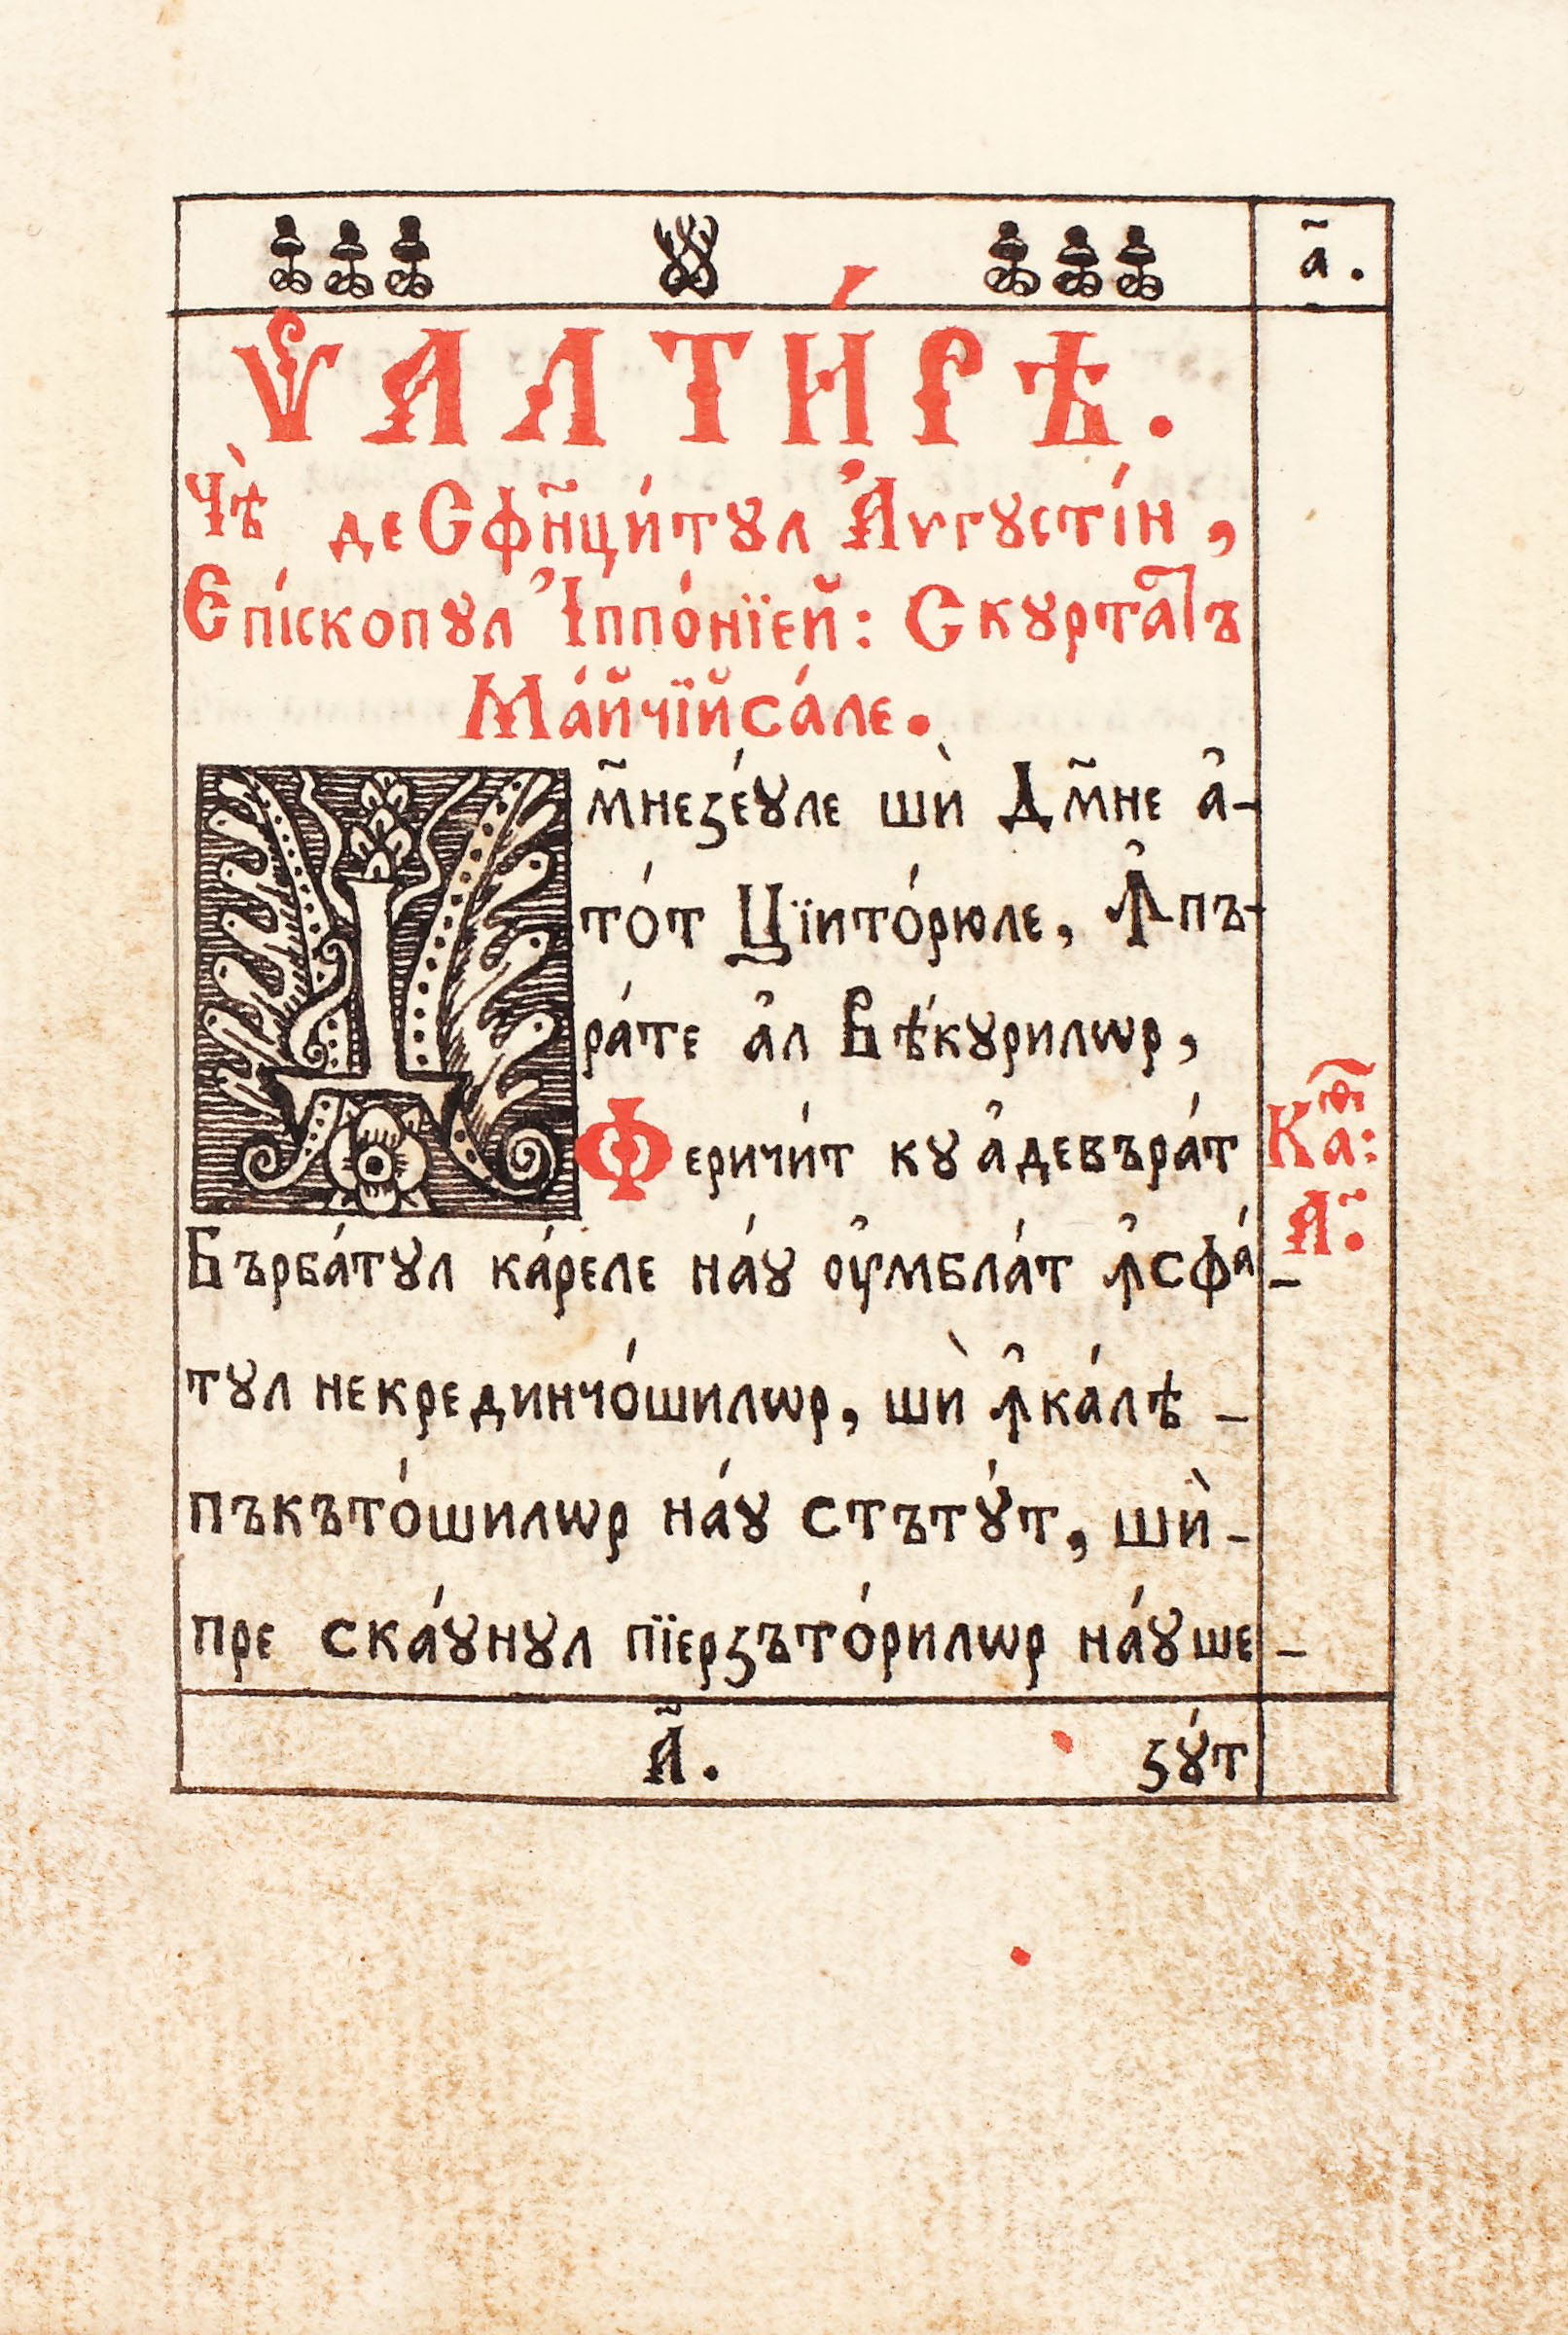 а҃.
ѰАЛТИ́РѢ.
Чѣ̀ де Сфн҃ци́тꙋл А҆ѵгꙋсті́н,
Епі́скопꙋл І҆ппо́нїей: Скꙋрта҃ тъ
Ма́йчїй са́ле.
Дм҃незе́ꙋле шѝ Дм҃не а҆-
то́т Цїито́рюле, Ꙟ҆пъ-
ра́те а҆л Вѣ́кꙋрилѡр,
Феричи́т кꙋ а҆девъра́т
Каѳ:
А҃.
Бърба́тꙋл ка́реле на́ꙋ оу҆мбла́т ꙟ҆ сфа́-
тꙋл некрединчо́шилѡр, шѝ ꙟ҆ ка́лѣ -
пъкъто́шилѡр на́ꙋ стътꙋ́т, шѝ -
пре ска́ꙋнꙋл пїерзъто́рилѡр на́ꙋ ше-
А҃.
зꙋ́т